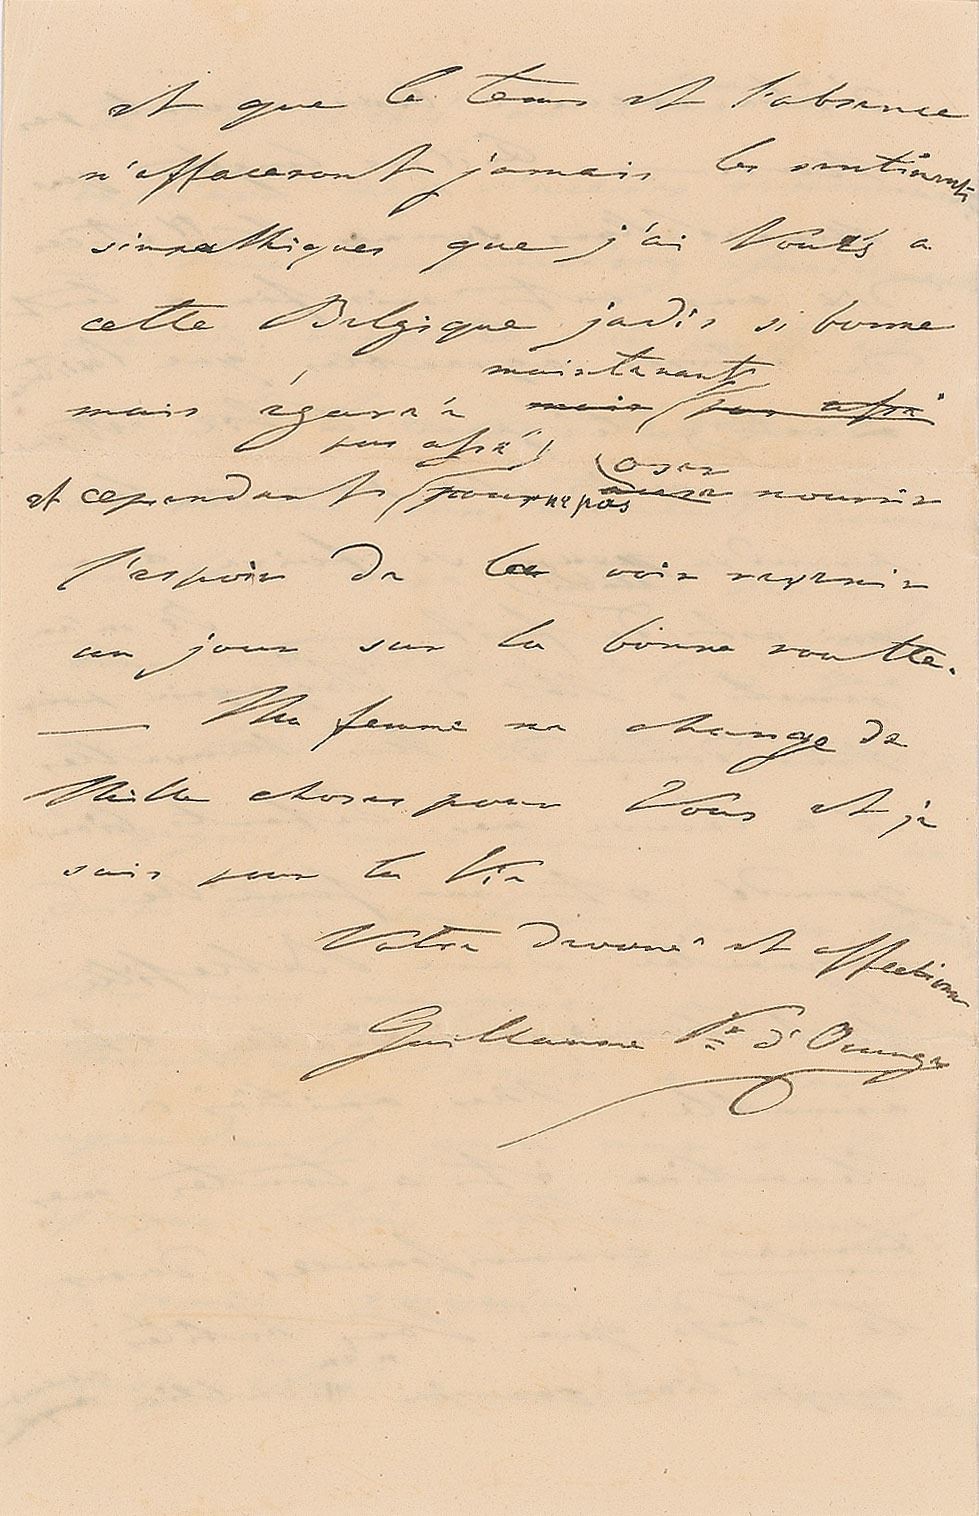 et que le tems et l'absence
n'effaceront jamais les sentiments
simpathiques que j'ai Voués a
cette Belgique jadis si bonne
maintenant
mais égarée mais pas assé
pas assé
oser
et cependant pour ne pas nourrir
l'espoir de la voir revenir
un jour sur la bonne routte.
— Ma femme me charge de
Mille choses pour Vous et je
suis pour la Vie
Votre devoué et affection
Guillaume Pce d'Orange